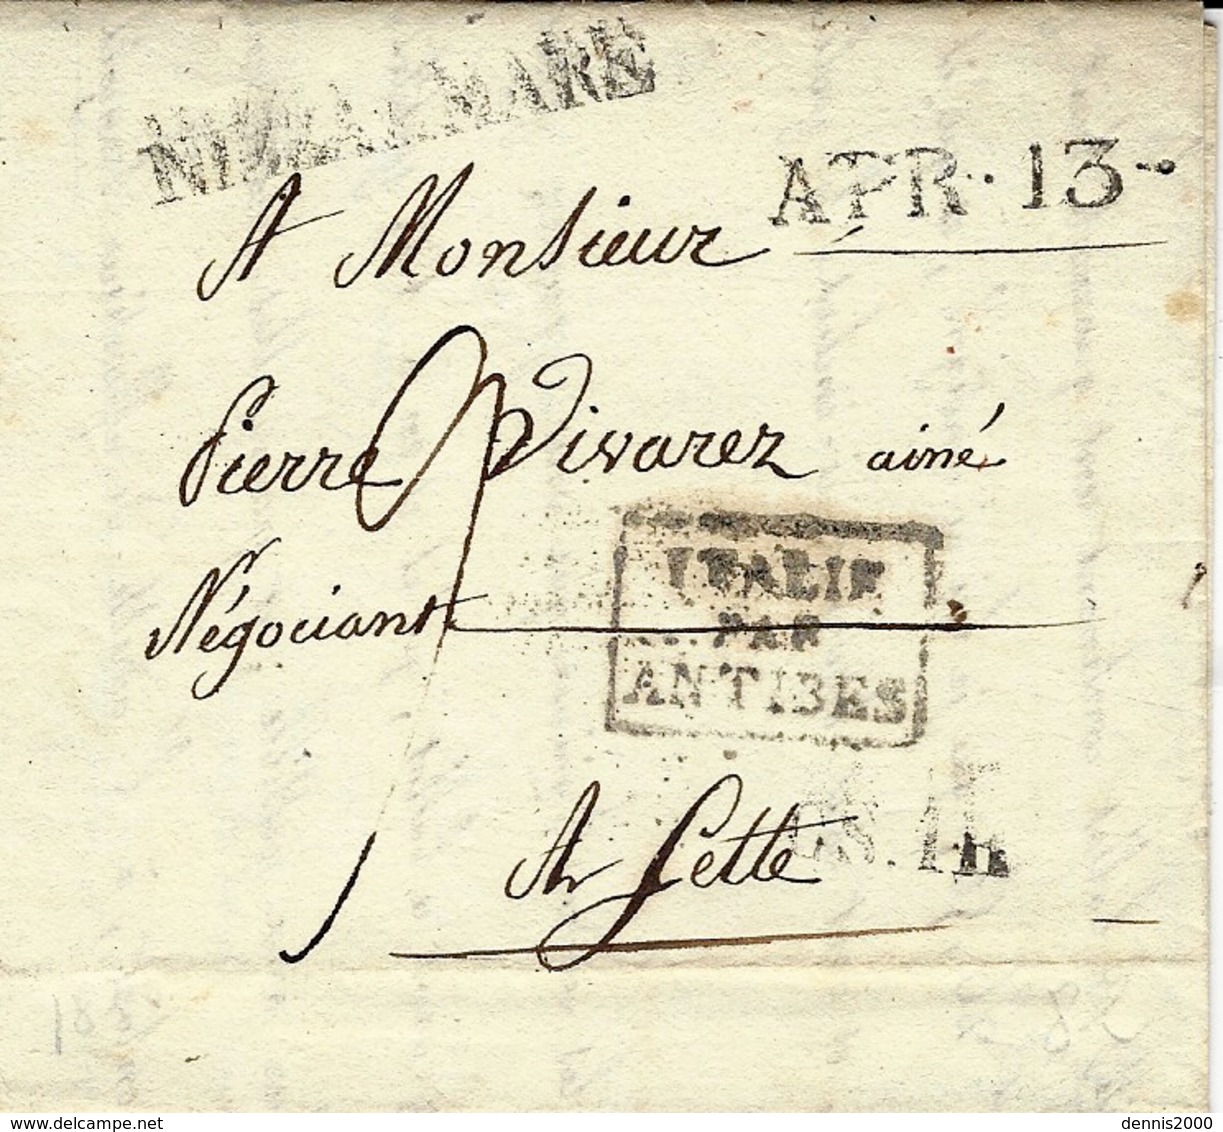 NIZZA MARE
APR. 13
A Monsieur
Pierre Vivarez ainé
Négociant
ITALIE
PAR
ANTIBES
A Cette
C.S. 1R
dennis2000